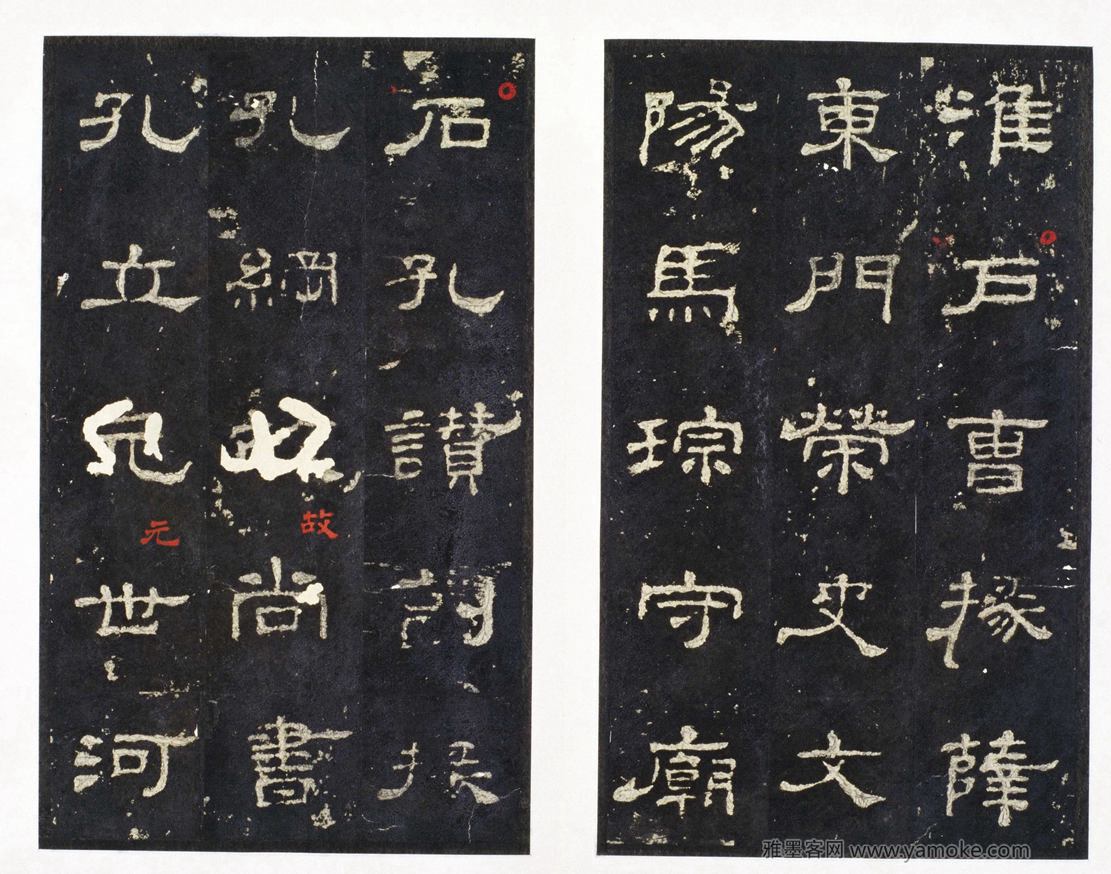 淮戶曹掾薛
東門榮史文
陽馬琮守廟
石孔讚副掾
孔綱故尚書
孔立元世河
雅墨客网 www.yamoke.com